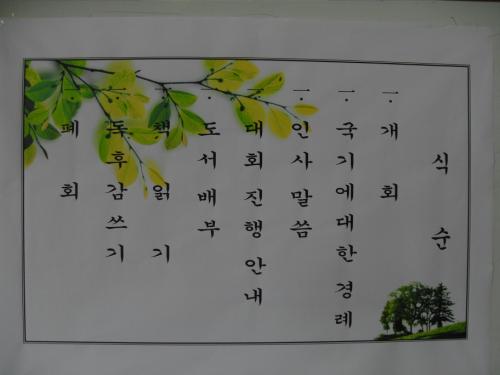 식순
一. 개회
一. 국기에대한경례
一. 인사말씀
一. 대회진행안내
一. 도서배부
一. 책읽기
一. 독후감쓰기
一. 폐회